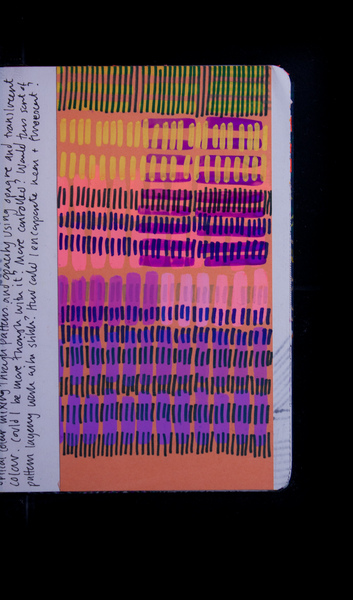 optical colour mixing through patterns and opacity using opaque and translucent
colour. Could I be more through with it? More controlled? Would this sort of
pattern layering work with stitch? How could I encorporate neon + fluorescent?